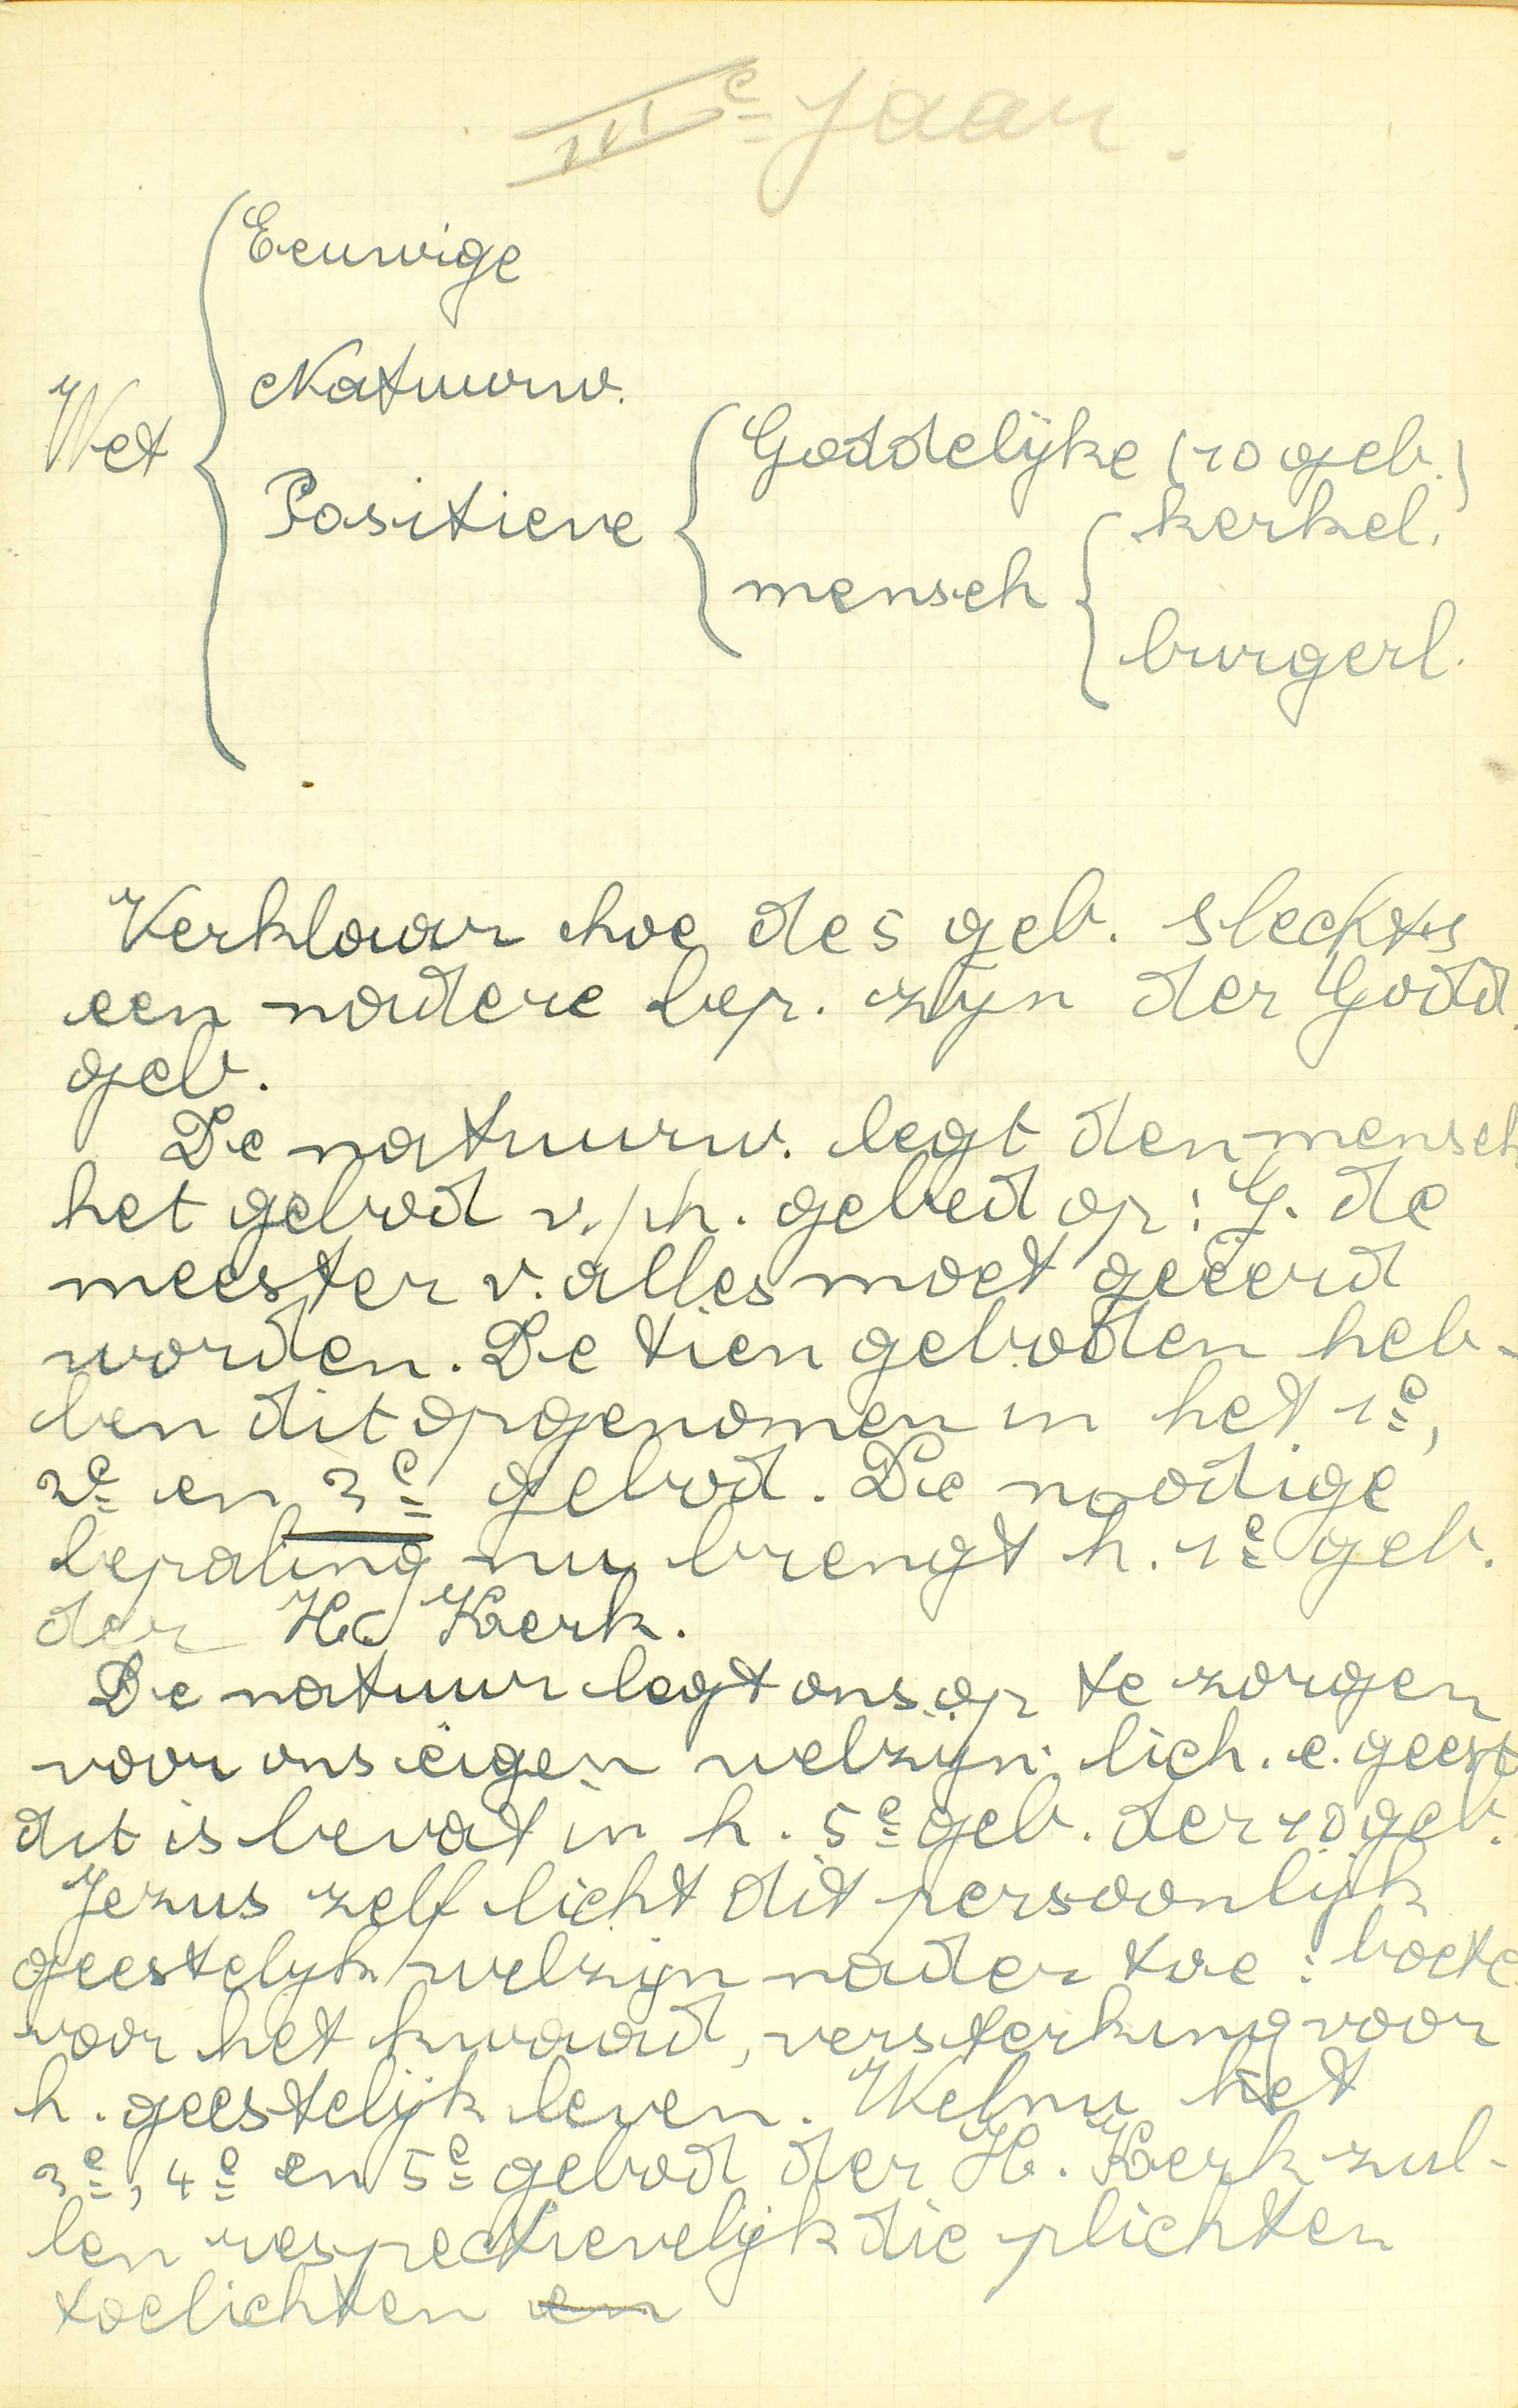 IIIe Jaar.
Eeuwige
Natuurw.
Wet
Goddelijke (10 geb.)
Positieve
kerkel.
mensch
burgerl.
Verklaar hoe de 5 geb. slechts
een nadere bep. zijn der Godd.
geb.
De natuurw. legt den mensch
het gebod v. h. gebed op: G. de
meester v. alles moet geëerd
worden. De tien geboden heb-
ben dit opgenomen in het 1e,
2e en 3e gebod. De noodige
bepaling nu brengt h. 1e geb.
der H. Kerk.
De natuur legt ons op te zorgen
voor ons eigen welzijn: lich. e. geest
dit is bevat in h. 5e geb. der 10 geb.
Jezus zelf licht dit persoonlijk
geestelijk welzijn nader toe: boete
voor het kwaad, versterking voor
h. geestelijk leven. Welnu het
3e, 4e en 5e gebod der H. Kerk zul-
len respectievelijk die plichten
toelichten en